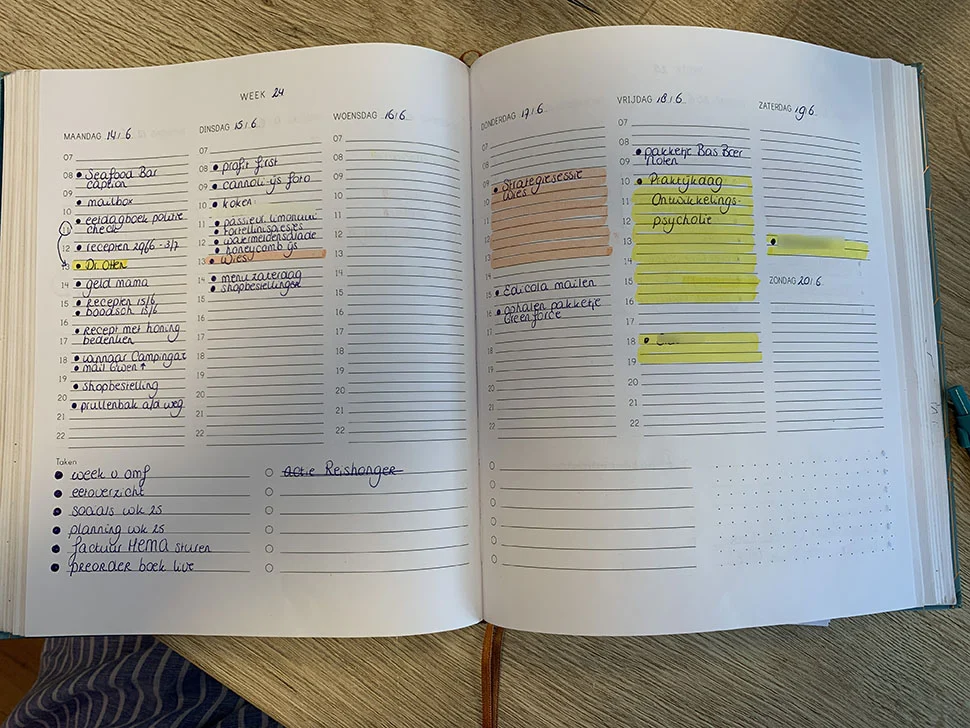 WEEK 24
MAANDAG 14/6
07
08
• Seafood Bar
caption
09
• mailbox
10
• eetdagboek politie
11
check
12
• recepten 29/6 - 3/7
13
• Dr. Otten
14
• geld mama
15
• Recepten 15/6
• boodsch 15/6
16
• Recept met honing
17
bedenken
18
• wannaar Campingaz
• mail Gwen ↑
19
• shopbestelling
20
• prullenbak a/d weg
21
22
DINSDAG 15/6
07
08
• profit first
09
• cannoli-ijs foto
10
• koken:
11
• tortellinispiesjes
12
• honeycomb ijs
13
• Wies
14
• menu zaterdag
• shopbestellingen
15
16
17
18
19
20
21
22
WOENSDAG 16/6
07
08
09
10
11
12
13
14
15
16
17
18
19
20
21
22
Taken
• week v omf
• eetoverzicht
• socials wk 25
• planning wk 25
• factuur HEMA sturen
• preorder boek live
actie Reishonger
DONDERDAG 17/6
07
08
09
• Strategiesessie
Wies
10
11
12
13
14
15
• Edicola mailen
16
• ophalen pakketje
Greenforce
17
18
19
20
21
22
VRIJDAG 18/6
07
08
• pakketje Bas Boer
09
Noten
10
• Praktijkdag
11
Ontwikkelings-
12
psycholie
13
14
15
16
17
18
19
20
21
22
ZATERDAG 19/6
ZONDAG 20/6